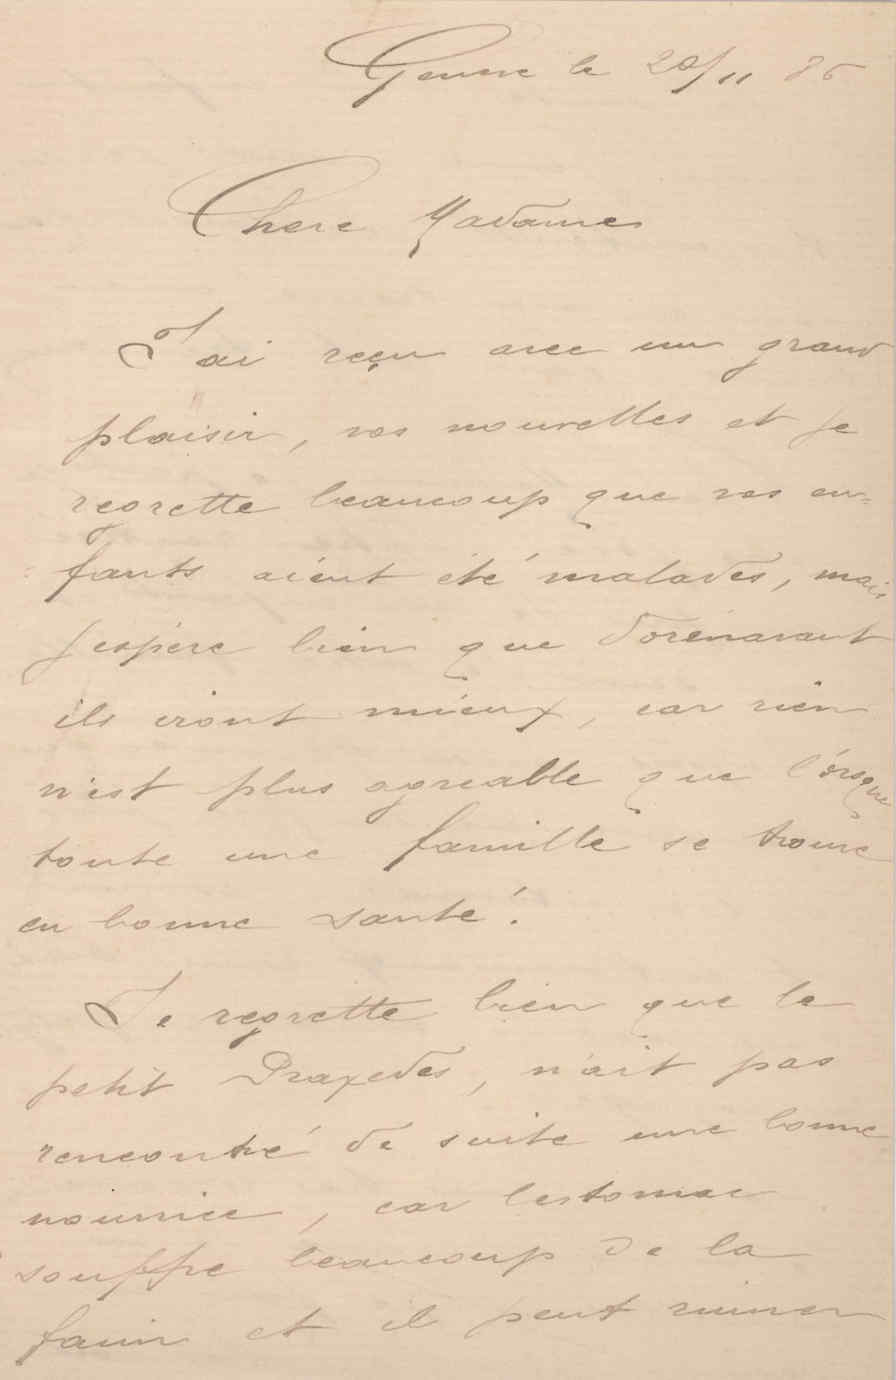 Genève le 20/11 86
Chere Madame
J'ai reçu avec un grand
plaisir, vos nouvelles et je
regrette beaucoup que vos en=
fants aient été malades, mais
j'espère bien que dorénavant
ils iront mieux, car rien
n'est plus agreable que l'orsque
toute une famille se trouve
en bonne santé!
Je regrette bien que le
petit Praxedes, n'ait pas
rencontré de suite une bonne
nourrice, car l'estomac
souffre beaucoup de la
faim et il peut ruiner